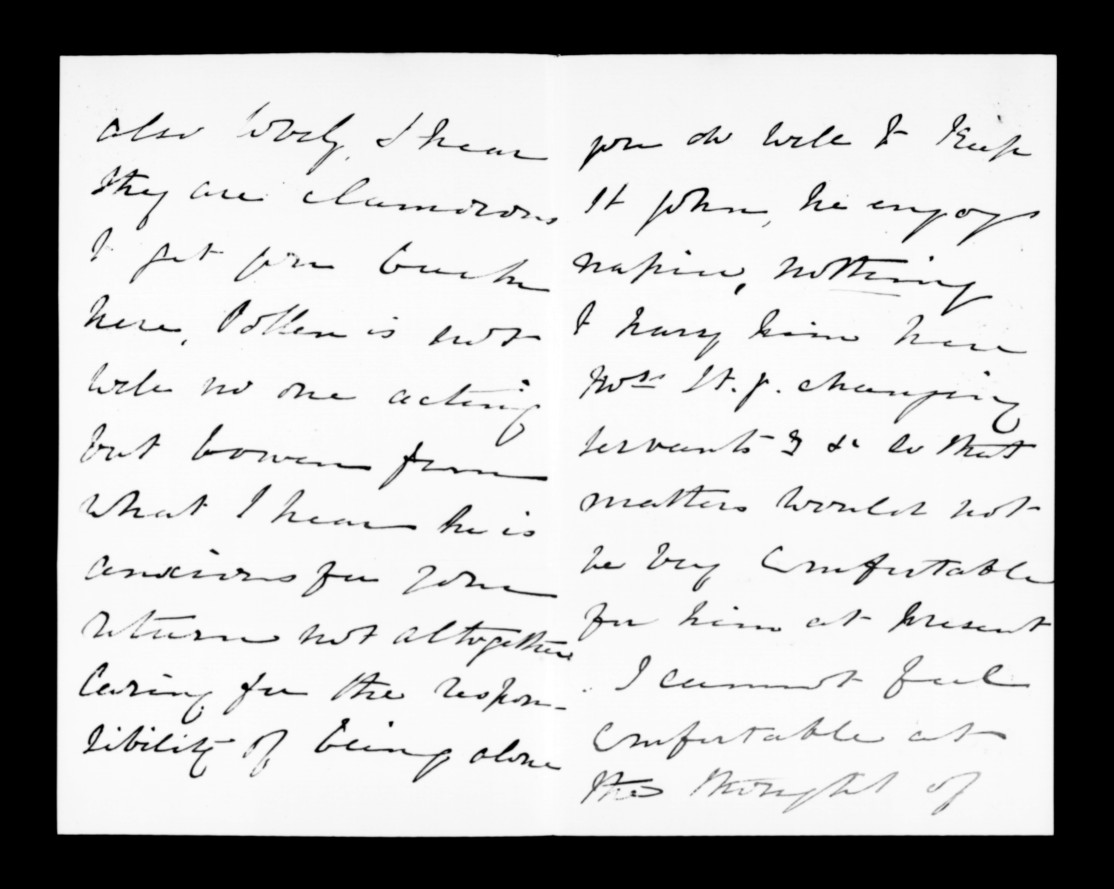 also lovely, I hear
they are clamorous
to get you back
here, Pollen is not
well no one acting
but Cowen from
what I hear he is
anxious for your
return not altogether
caring for the respon-
sibility of being alone
you do well to keep
St John, he enjoys
napier, nothing
to hurry him here
Mrs St. J. changing
servants & &c so that
matters would not
be very comfortable
for him at present
. I cannot feel
comfortable at
the thought of